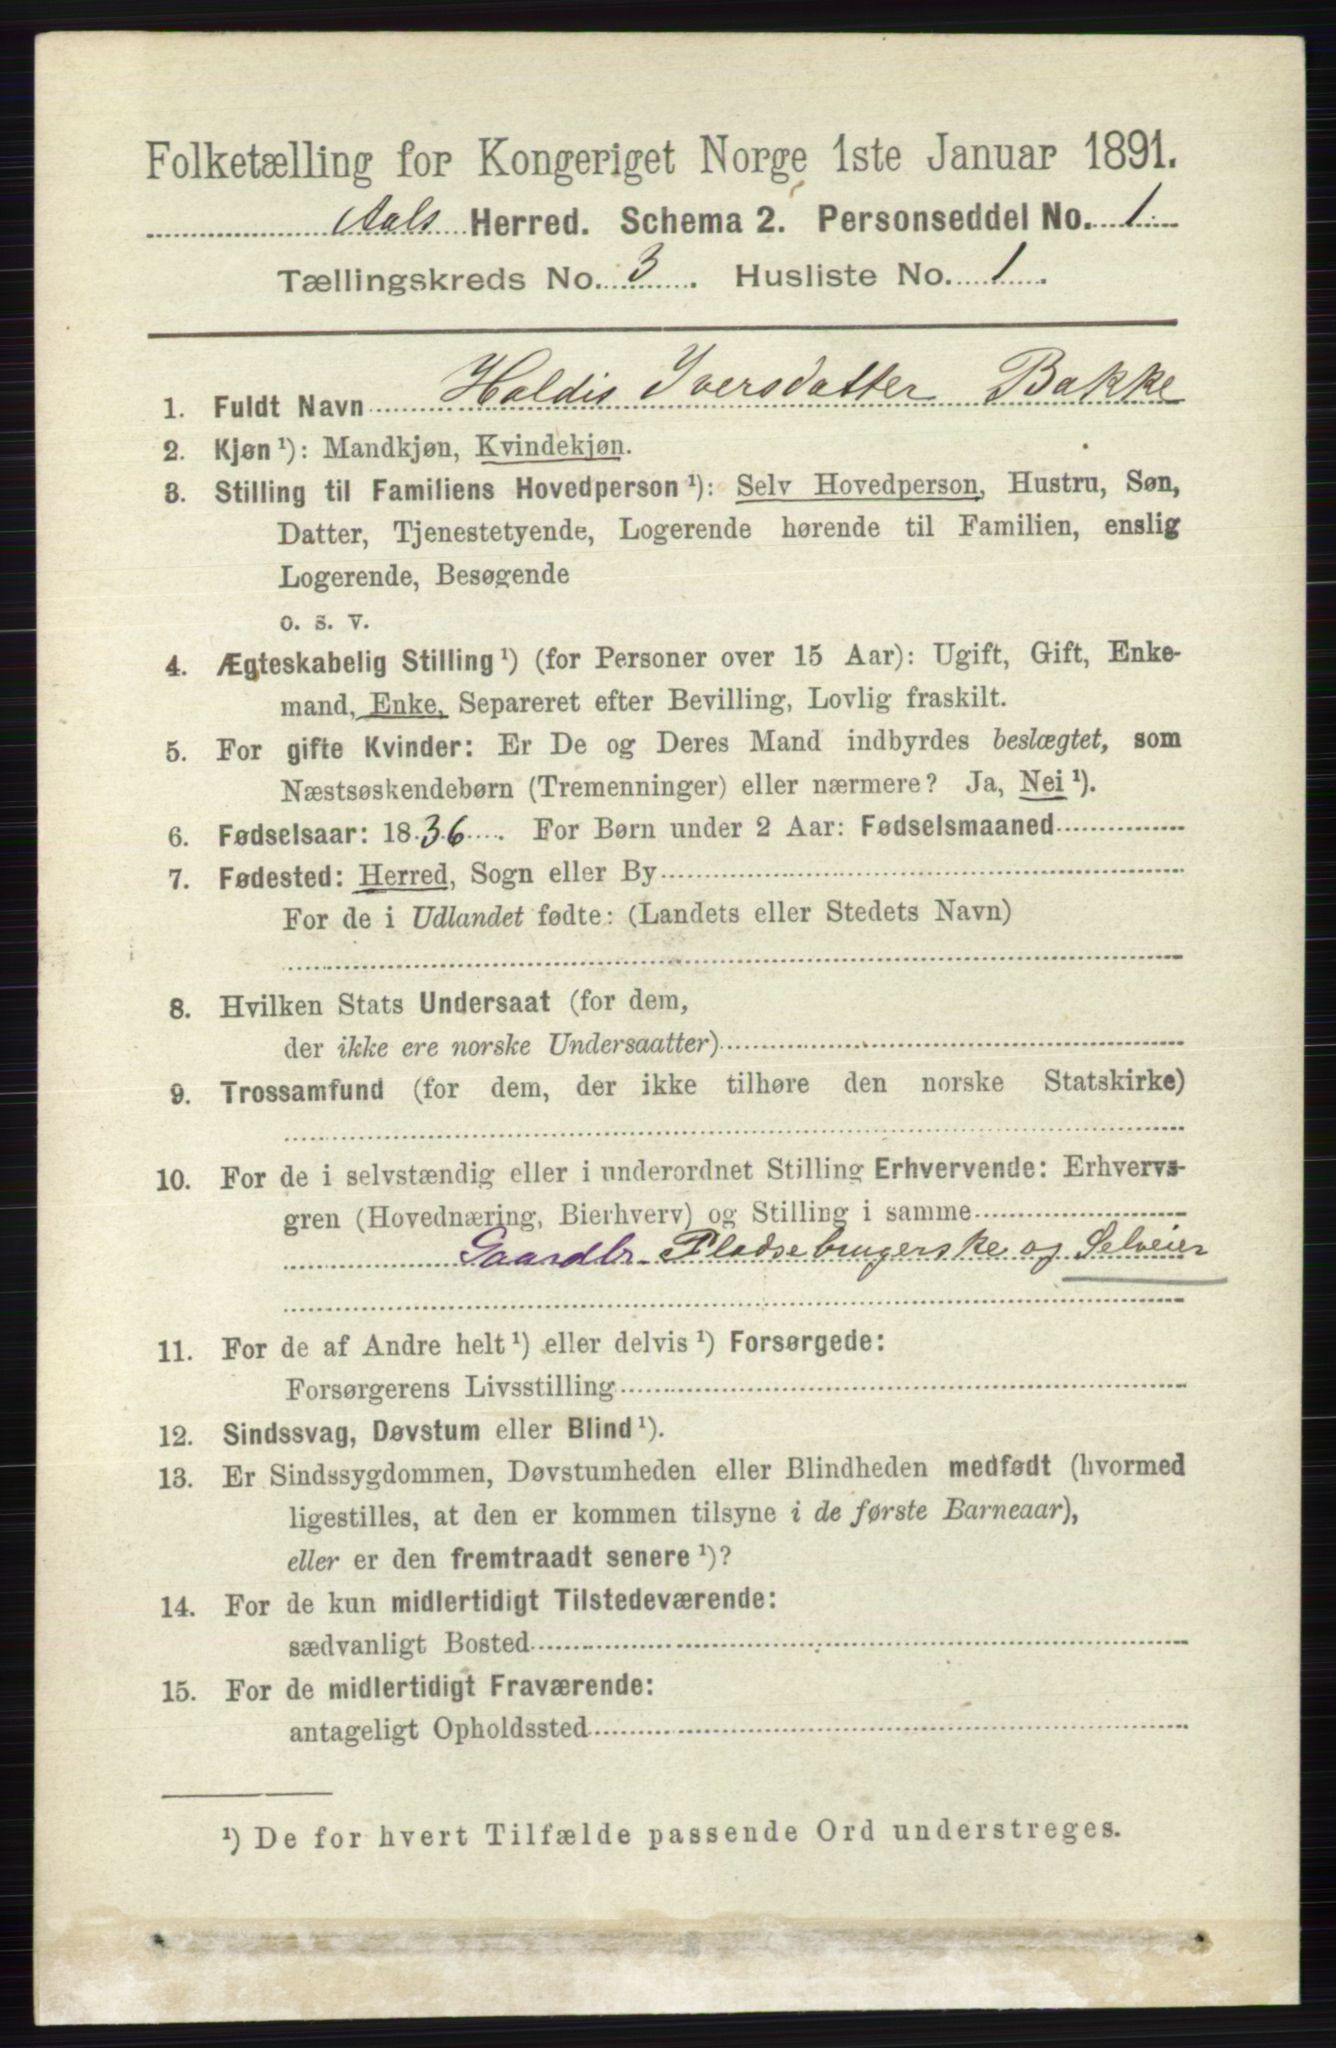 Folketælling for Kongeriget Norge 1ste Januar 1891.
Aals Herred. Schema 2. Personseddel No. 1
Tællingskreds No. 3. Husliste No. 1.
1. Fuldt Navn Holdis Iversdatter Bakke
2. Kjøn ¹): Mandkjøn, Kvindekjøn.
3. Stilling til Familiens Hovedperson ¹): Selv Hovedperson, Hustru, Søn,
Datter, Tjenestetyende, Logerende hørende til Familien, enslig
Logerende, Besøgende
o. s. v.
4. Ægteskabelig Stilling ¹) (for Personer over 15 Aar): Ugift, Gift, Enke-
mand, Enke, Separeret efter Bevilling, Lovlig fraskilt.
5. For gifte Kvinder: Er De og Deres Mand indbyrdes beslægtet, som
Næstsøskendebørn (Tremenninger) eller nærmere? Ja, Nei ¹).
6. Fødselsaar: 1836. For Børn under 2 Aar: Fødselsmaaned
7. Fødested: Herred, Sogn eller By
For de i Udlandet fødte: (Landets eller Stedets Navn)
8. Hvilken Stats Undersaat (for dem,
der ikke ere norske Undersaatter)
9. Trossamfund (for dem, der ikke tilhøre den norske Statskirke)
10. For de i selvstændig eller i underordnet Stilling Erhvervende: Erhvervs-
gren (Hovednæring, Bierhverv) og Stilling i samme
Gaardbr. Pladsebrugerske og Selveier
11. For de af Andre helt ¹) eller delvis ¹) Forsørgede:
Forsørgerens Livsstilling
12. Sindssvag, Døvstum eller Blind ¹).
13. Er Sindssygdommen, Døvstumheden eller Blindheden medfødt (hvormed
ligestilles, at den er kommen tilsyne i de første Barneaar),
eller er den fremtraadt senere ¹)?
14. For de kun midlertidigt Tilstedeværende:
sædvanligt Bosted
15. For de midlertidigt Fraværende:
antageligt Opholdssted
¹) De for hvert Tilfælde passende Ord understreges.